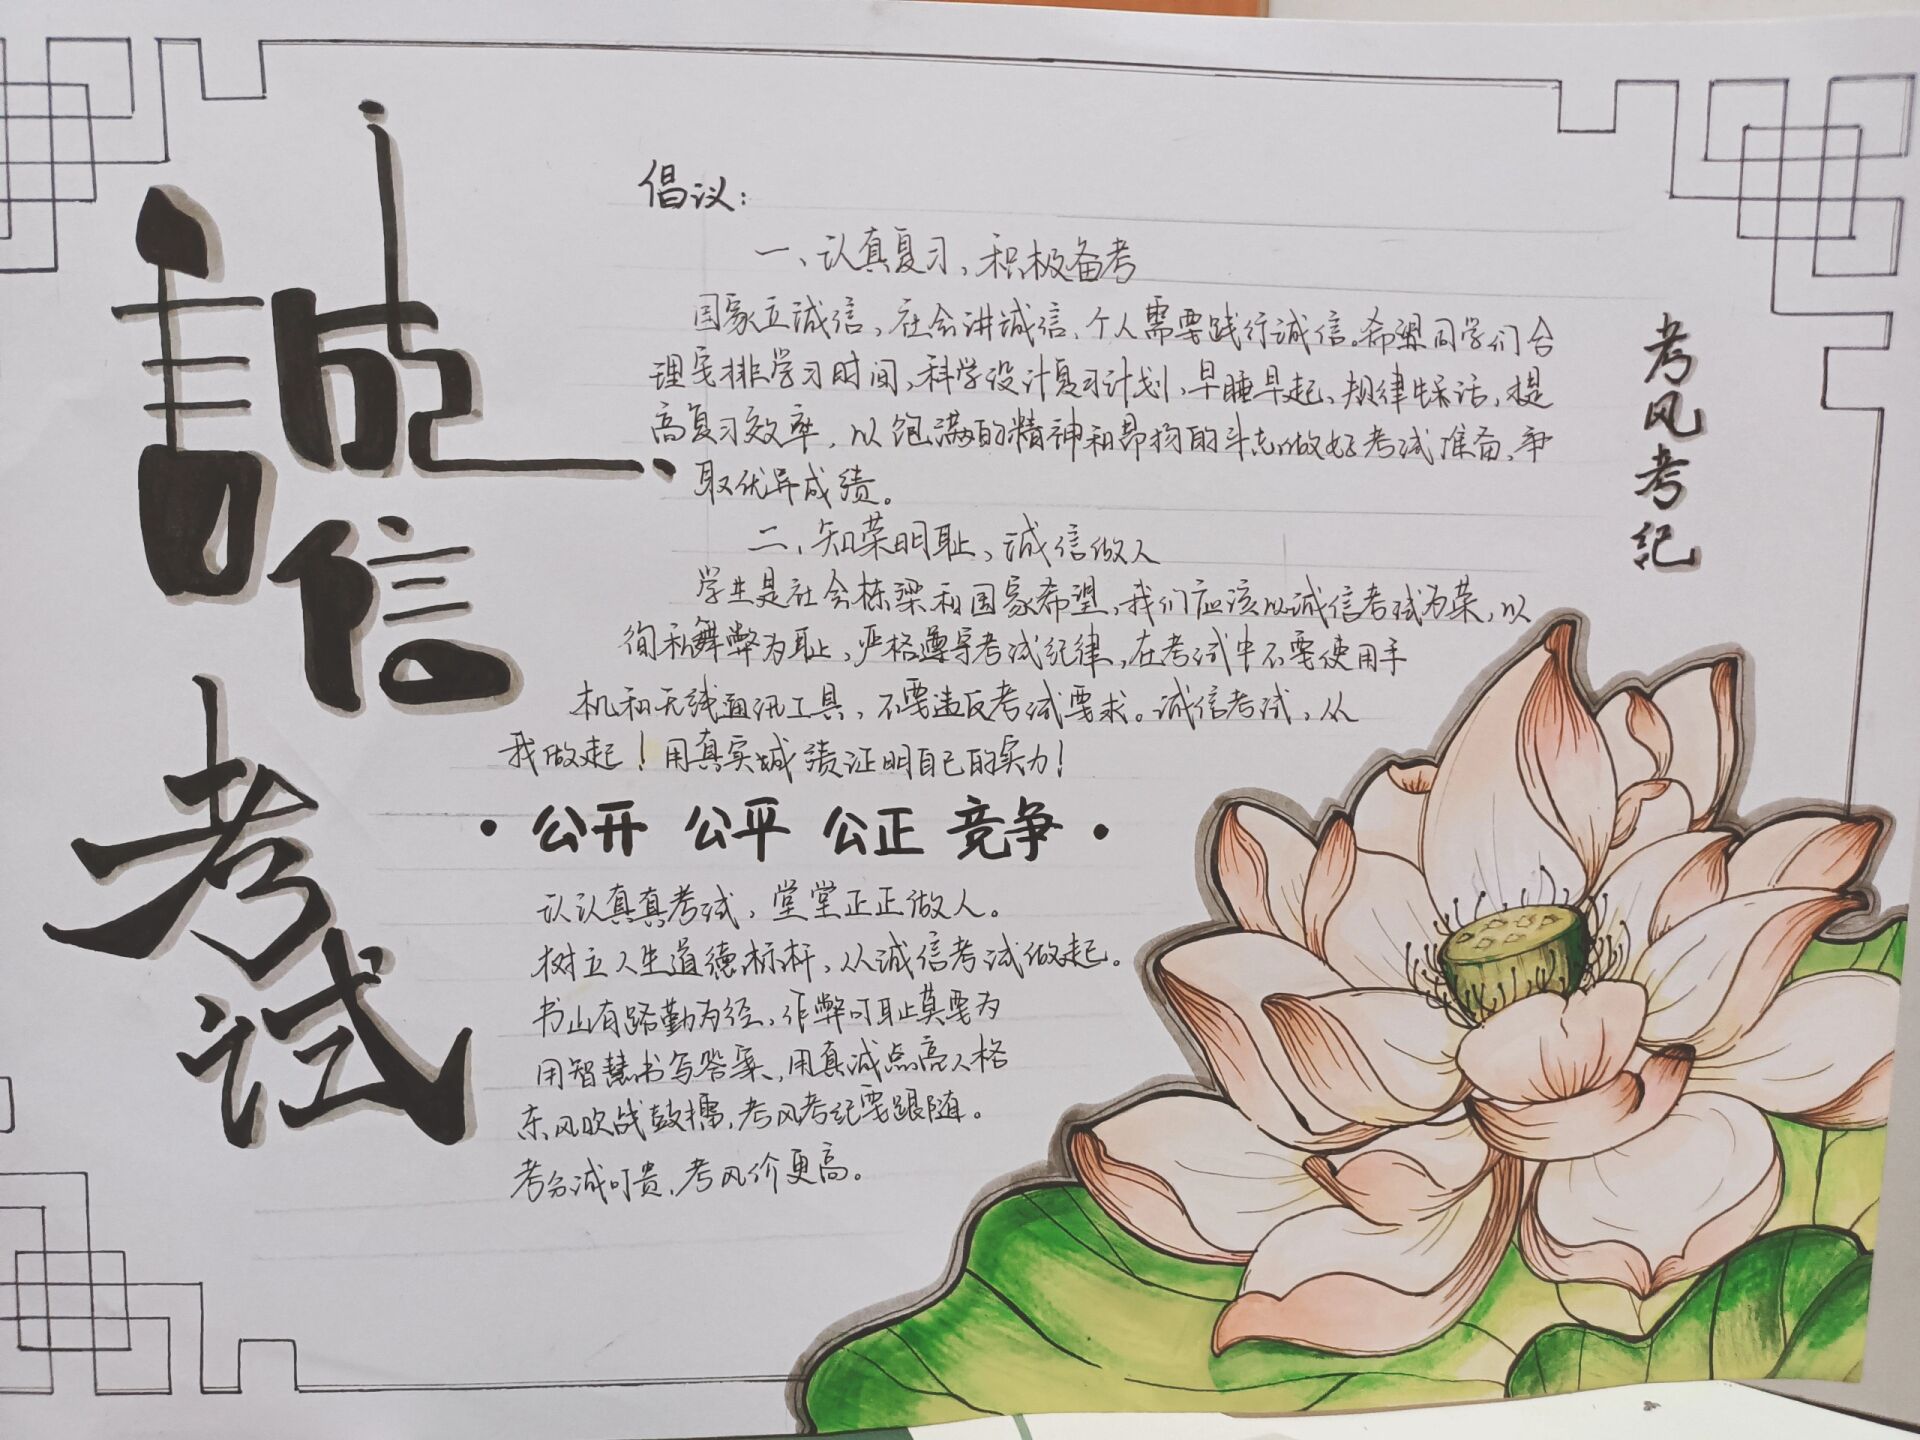 誠信
考试
倡议：
一、认真复习、积极备考
国家立诚信，社会讲诚信，个人需要践行诚信。希望同学们合
理安排学习时间，科学设计复习计划，早睡早起、规律生活，提
高复习效率，以饱满的精神和昂扬的斗志做好考试准备，争
取优异成绩。
二、知荣明耻、诚信做人
学生是社会栋梁和国家希望，我们应该以诚信考试为荣，以
徇私舞弊为耻，严格遵守考试纪律，在考试中不要使用手
机和无线通讯工具，不要违反考试要求。诚信考试，从
我做起！用真实成绩证明自己的实力！
·公开 公平 公正 竞争·
认认真真考试，堂堂正正做人。
树立人生道德标杆，从诚信考试做起。
书山有路勤为径，作弊可耻莫要为
用智慧书写答案，用真诚点亮人格
东风吹战鼓擂，考风考纪要跟随。
考分诚可贵，考风价更高。
考风考纪